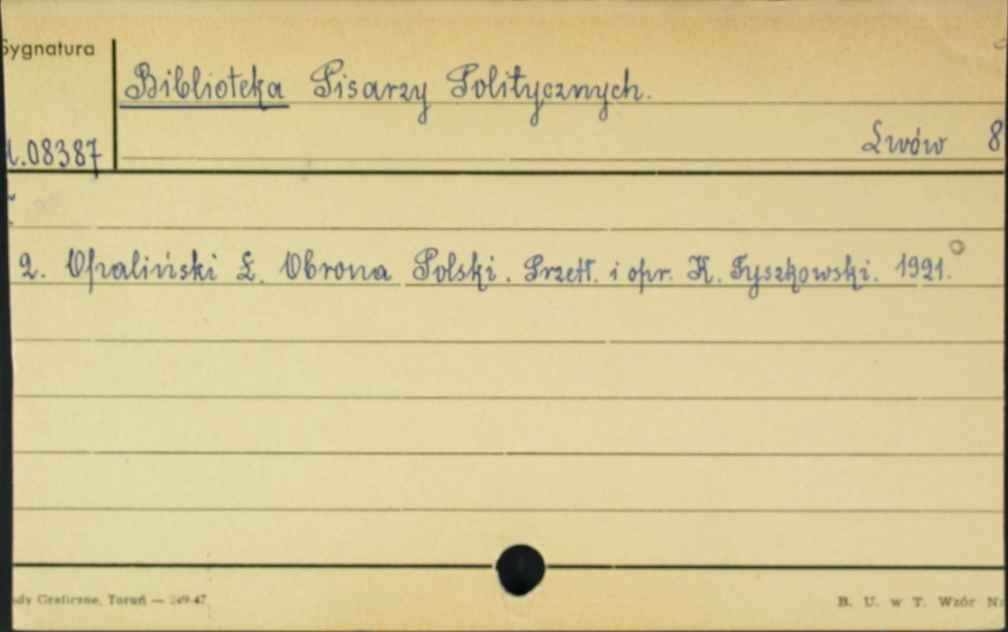 Sygnatura
Biblioteka Pisarzy Politycznych.
Lwów 8
.08387
2. Opaliński Ł. Obrona Polski. Przetł. i opr. K. Tyszkowski. 1921.
Graficzne, Toruń — 249-47
B. U. w T. Wzór